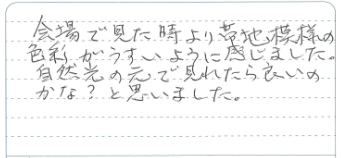 会場で見た時より帯地、模様の
色彩がうすいように感じました。
自然光の元で見れたら良いの
かな?と思いました。